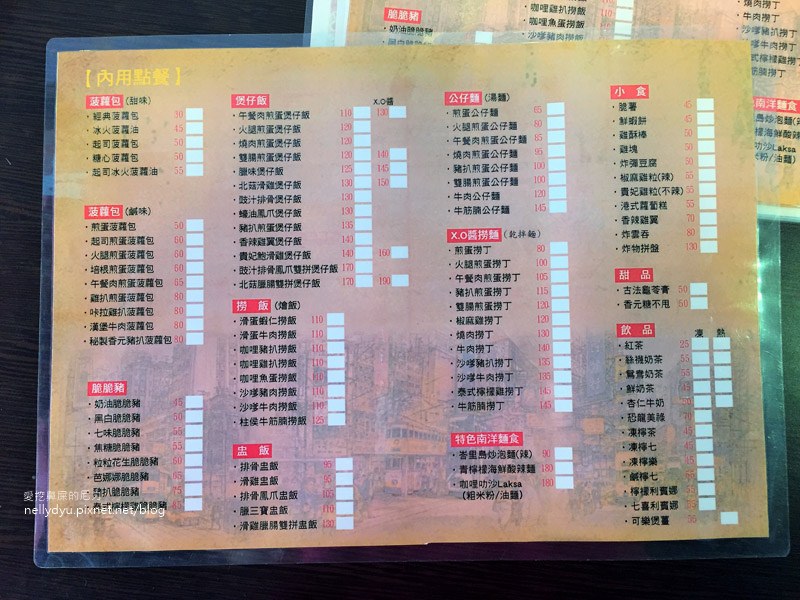 【內用點餐】
菠蘿包(甜味)
・經典菠蘿包 30
・冰火菠蘿油 45
・起司菠蘿包 50
・糖心菠蘿包 50
・起司冰火菠蘿油 55
菠蘿包(鹹味)
・煎蛋菠蘿包 50
・起司煎蛋菠蘿包 60
・火腿煎蛋菠蘿包 60
・培根煎蛋菠蘿包
・午餐肉煎蛋菠蘿包
・雞扒煎蛋菠蘿包 80
・咔拉雞扒菠蘿包
・漢堡牛肉菠蘿包 80
・秘製香元豬扒菠蘿包 80
脆脆豬
・奶油脆脆豬 45
・黑白脆脆豬
・七味脆脆豬
・焦糖脆脆豬
・粒粒花生脆脆豬
・芭娜娜脆脆豬
豬扒脆脆豬
煲仔飯 X.O醬
・午餐肉煎蛋煲仔飯 110 130
・火腿煎蛋煲仔飯 120
・燒肉煎蛋煲仔飯 120
・雙腸煎蛋煲仔飯 120 140
・臘味煲仔飯 125 145
・北菇滑雞煲仔飯 130 150
・豉汁排骨煲仔飯 130
・蠔油鳳爪煲仔飯 130
・豬扒煎蛋煲仔飯 135
・香辣雞翼煲仔飯
・貴妃鮑滑雞煲仔飯 140 160
・豉汁排骨鳳爪雙拼煲仔飯 170
・北菇臘腸滑雞雙拼煲仔飯 170 190
撈飯(燴飯)
・滑蛋蝦仁撈飯 110
・滑蛋牛肉撈飯 110
・咖哩豬扒撈飯 110
・咖哩雞扒撈飯 110
・咖哩魚蛋撈飯 110
・沙嗲豬肉撈飯 110
・沙嗲牛肉撈飯 110
・柱侯牛筋腩撈飯 125
盅飯
・排骨盅飯 95
・滑雞盅飯 95
・排骨鳳爪盅飯
・臘三寶盅飯 110
・滑雞臘腸雙拼盅飯 130
公仔麵(湯麵)
・煎蛋公仔麵 65
・火腿煎蛋公仔麵 80
・午餐肉煎蛋公仔麵 85
・燒肉煎蛋公仔麵 90
・豬扒煎蛋公仔麵
・雙腸煎蛋公仔麵 100
・牛肉公仔麵 120
・牛筋腩公仔麵 145
X.O醬撈麵(乾拌麵)
・煎蛋撈丁 80
・火腿煎蛋撈丁 100
・午餐肉煎蛋撈丁 105
・豬扒煎蛋撈丁 115
・雙腸煎蛋撈丁 120
・椒麻雞撈丁 120
・燒肉撈丁 130
・牛肉撈丁 140
・沙嗲豬肉撈丁 135
・沙嗲牛肉撈丁 135
・泰式檸檬雞撈丁 145
・牛筋腩撈丁 145
特色南洋麵食
・峇里島炒泡麵(辣) 90
・青檸檬海鮮酸辣麵 180
・咖哩叻沙Laksa 180
(粗米粉/油麵)
小食
・脆薯 45
・鮮蝦餅 45
・雞酥棒 50
・雞塊 50
・炸彈豆腐 50
・椒麻雞粒(辣) 55
・貴妃雞粒(不辣) 55
・港式蘿蔔糕 50
・香辣雞翼 70
・炸雲吞 80
・炸物拼盤 130
甜品
・古法龜苓膏 50
・香元糖不甩 60
飲品 凍 熱
・紅茶 25
・絲襪奶茶 55
・鴛鴦奶茶
・鮮奶茶
・杏仁牛奶
・恐龍美祿
・凍檸茶
・凍檸七
・凍檸樂
・鹹檸七
・檸檬利賓娜
・七喜利賓娜
・可樂煲薑 55
脆脆豬
・奶油脆脆豬
・咖哩雞扒撈飯
・咖哩魚蛋撈飯
・沙嗲豬肉撈飯
・燒肉撈丁
・牛肉撈丁
・沙嗲豬肉撈丁
・沙嗲牛肉撈丁
泰式檸檬雞撈丁
・牛筋腩撈丁
南洋麵食
島炒泡麵(辣)
檬海鮮酸辣麵
叻沙Laksa
米粉/油麵)
愛挖鼻屎的尼力
nellydyu.pixnet.net/blog